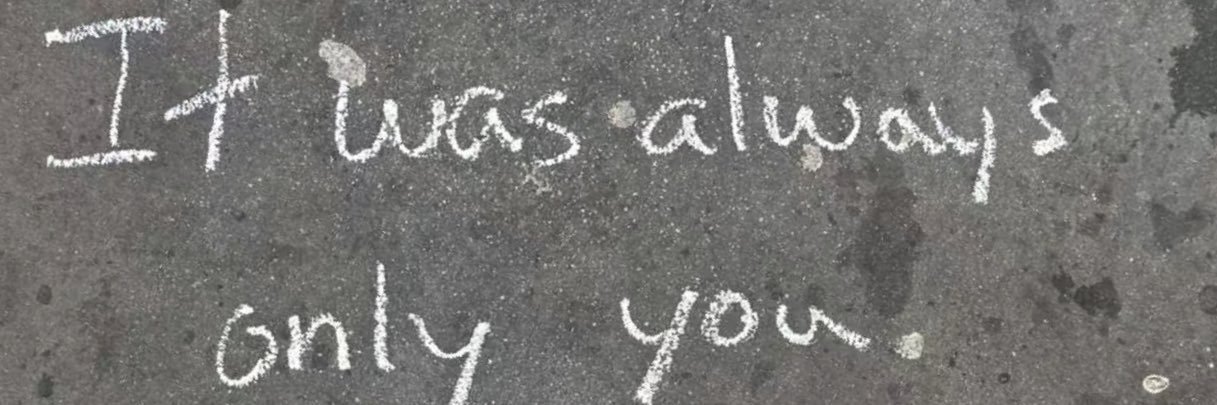 It was always
only you.